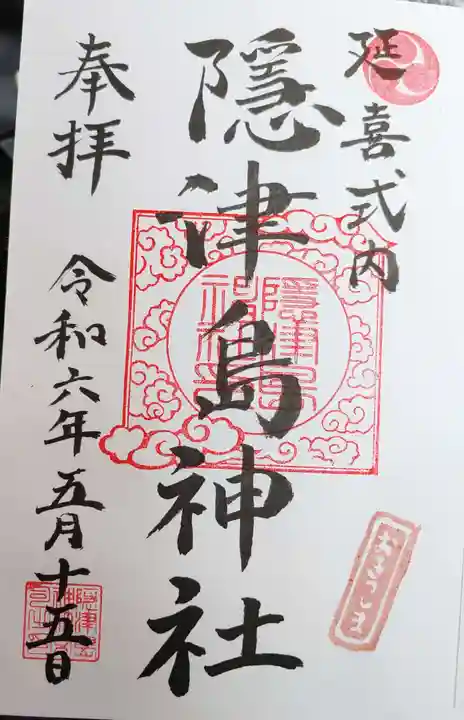 延喜式内
隱津島神社
奉拝
令和六年五月十五日
おきつしま